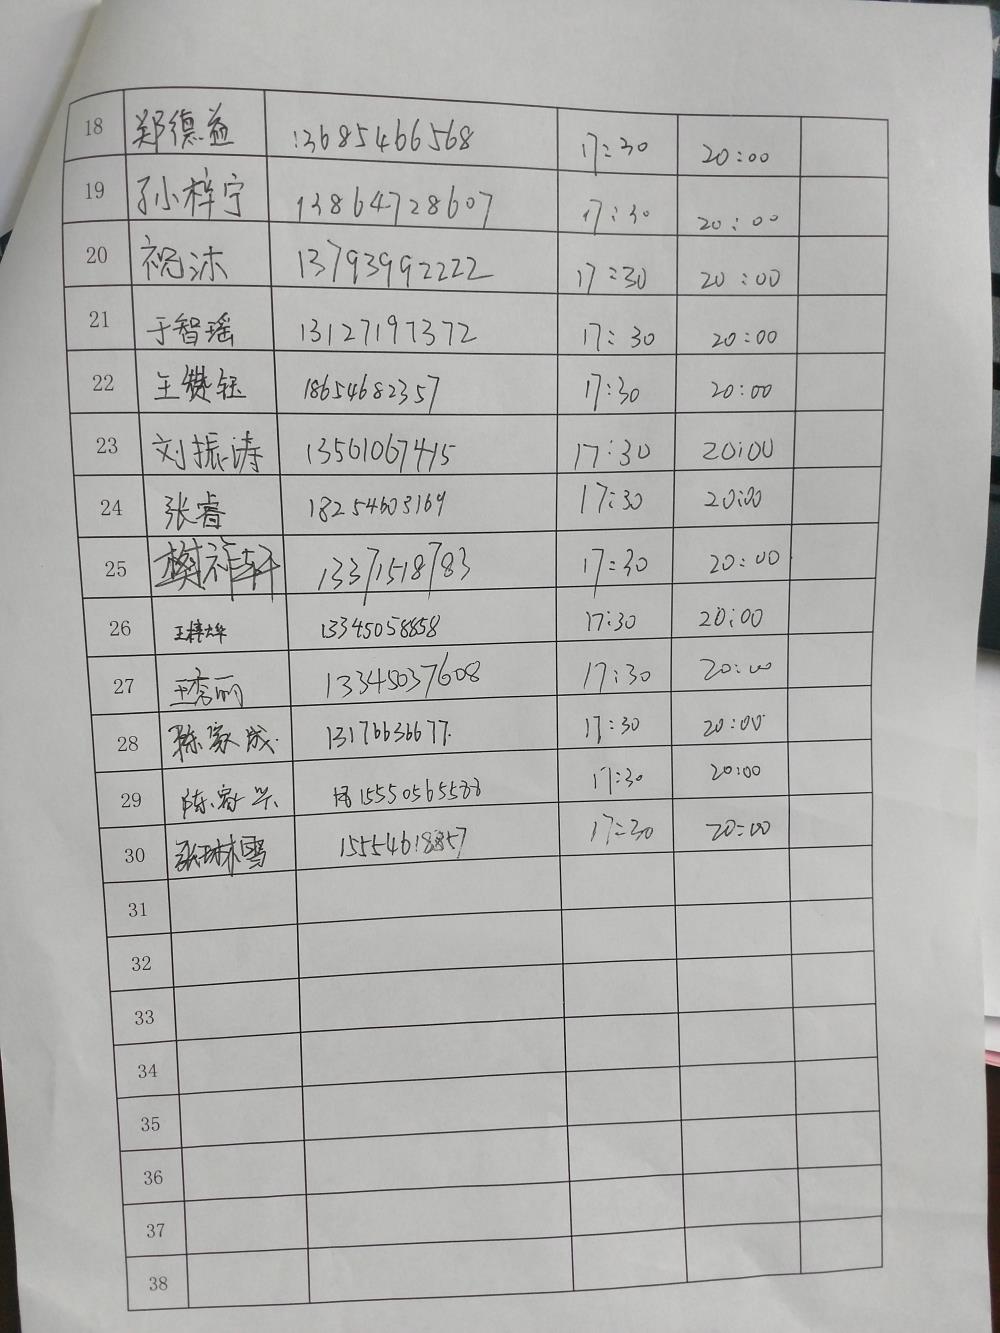 18 郑德益 13685466568 17:30 20:00
19 孙梓宁 13864728607 17:30 20:00
20 祝沐 13793992222 17:30 20:00
21 于智瑶 13127197372 17:30 20:00
22 王赞钰 18654682357 17:30 20:00
23 刘振涛 13561067415 17:30 20:00
24 张睿 18254603169 17:30 20:00
25 樊祚轩 13371518783 17:30 20:00
26 13345058858 17:30 20:00
27 王秀丽 13345037608 17:30 20:00
28 陈家成 13176636677 17:30 20:00
29 15550565588 17:30 20:00
30 张琳雪 15554618857 17:30 20:00
31
32
33
34
35
36
37
38